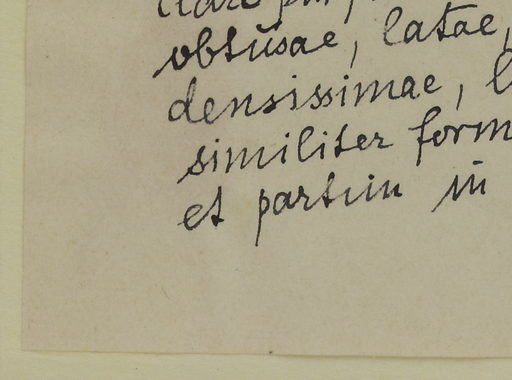 obtusae, latae,
densissimae,
similiter form
et partim in